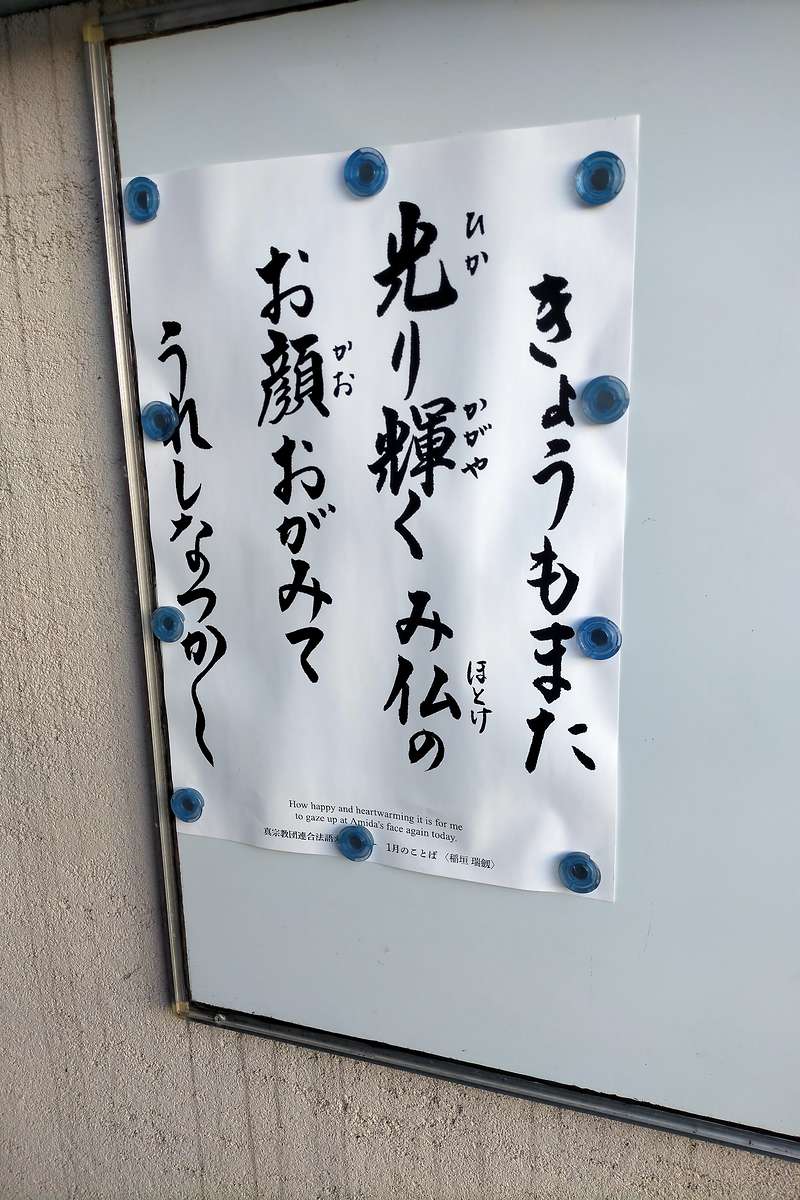 きょうもまた
光り輝くみ仏の
ひか
かがや
ほとけ
お顔おがみて
かお
うれしなつかし
How happy and heartwarming it is for me
to gaze up at Amida's face again today.
真宗教団連合法語 1月のことば〈稲垣 瑞劔〉